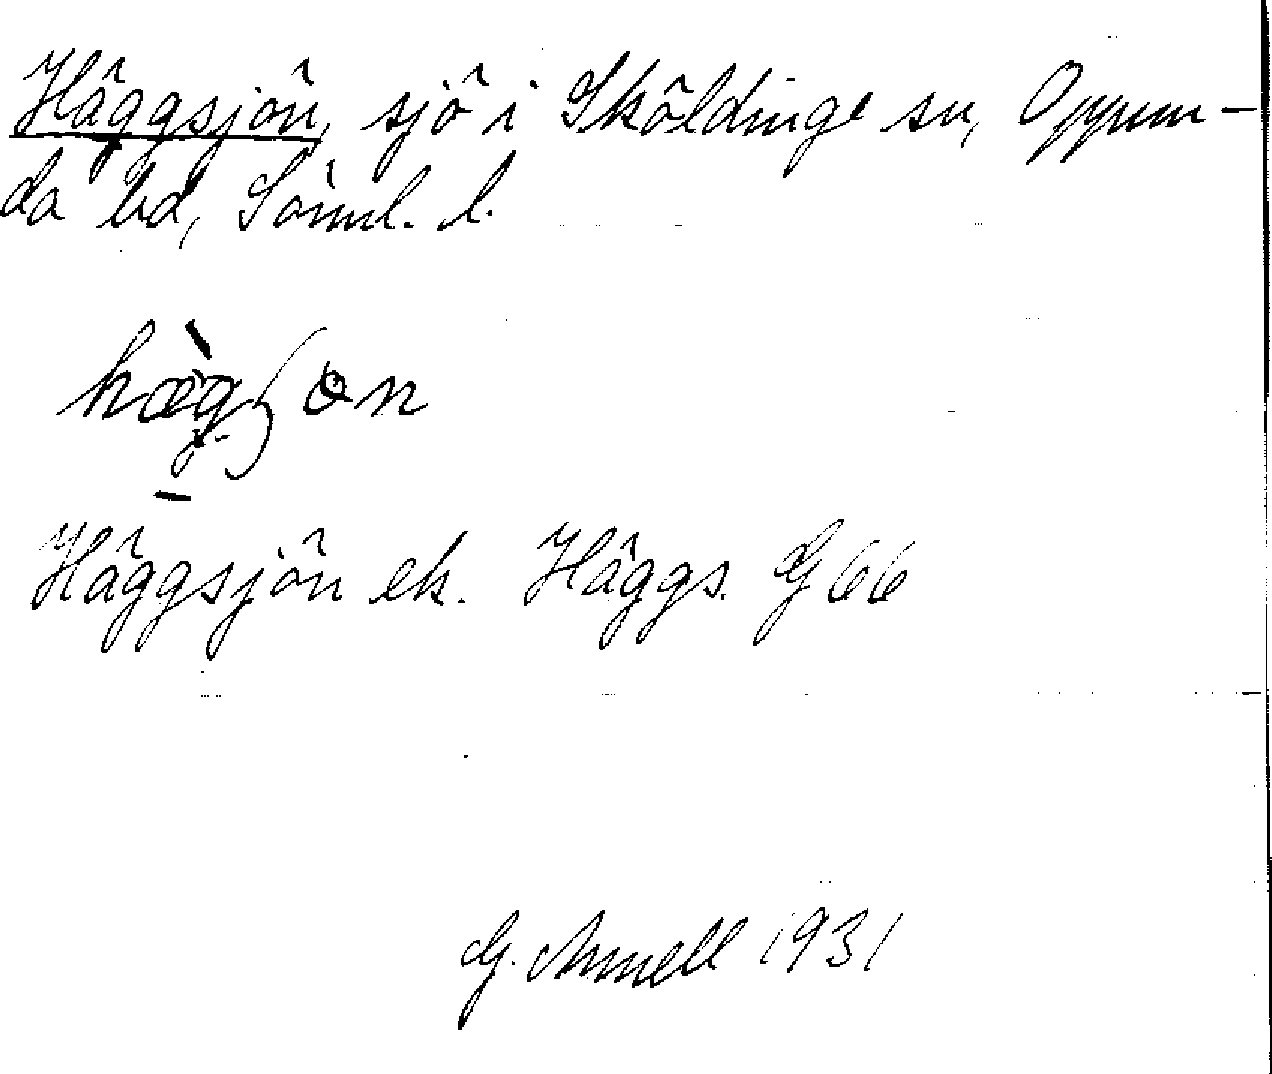 Häggsjön, sjö i Sköldinge sn, Oppun-
da hd, Söml. l.
hægʃɵn
Häggsjön ek. Häggs. G 66
G. Armell 1931